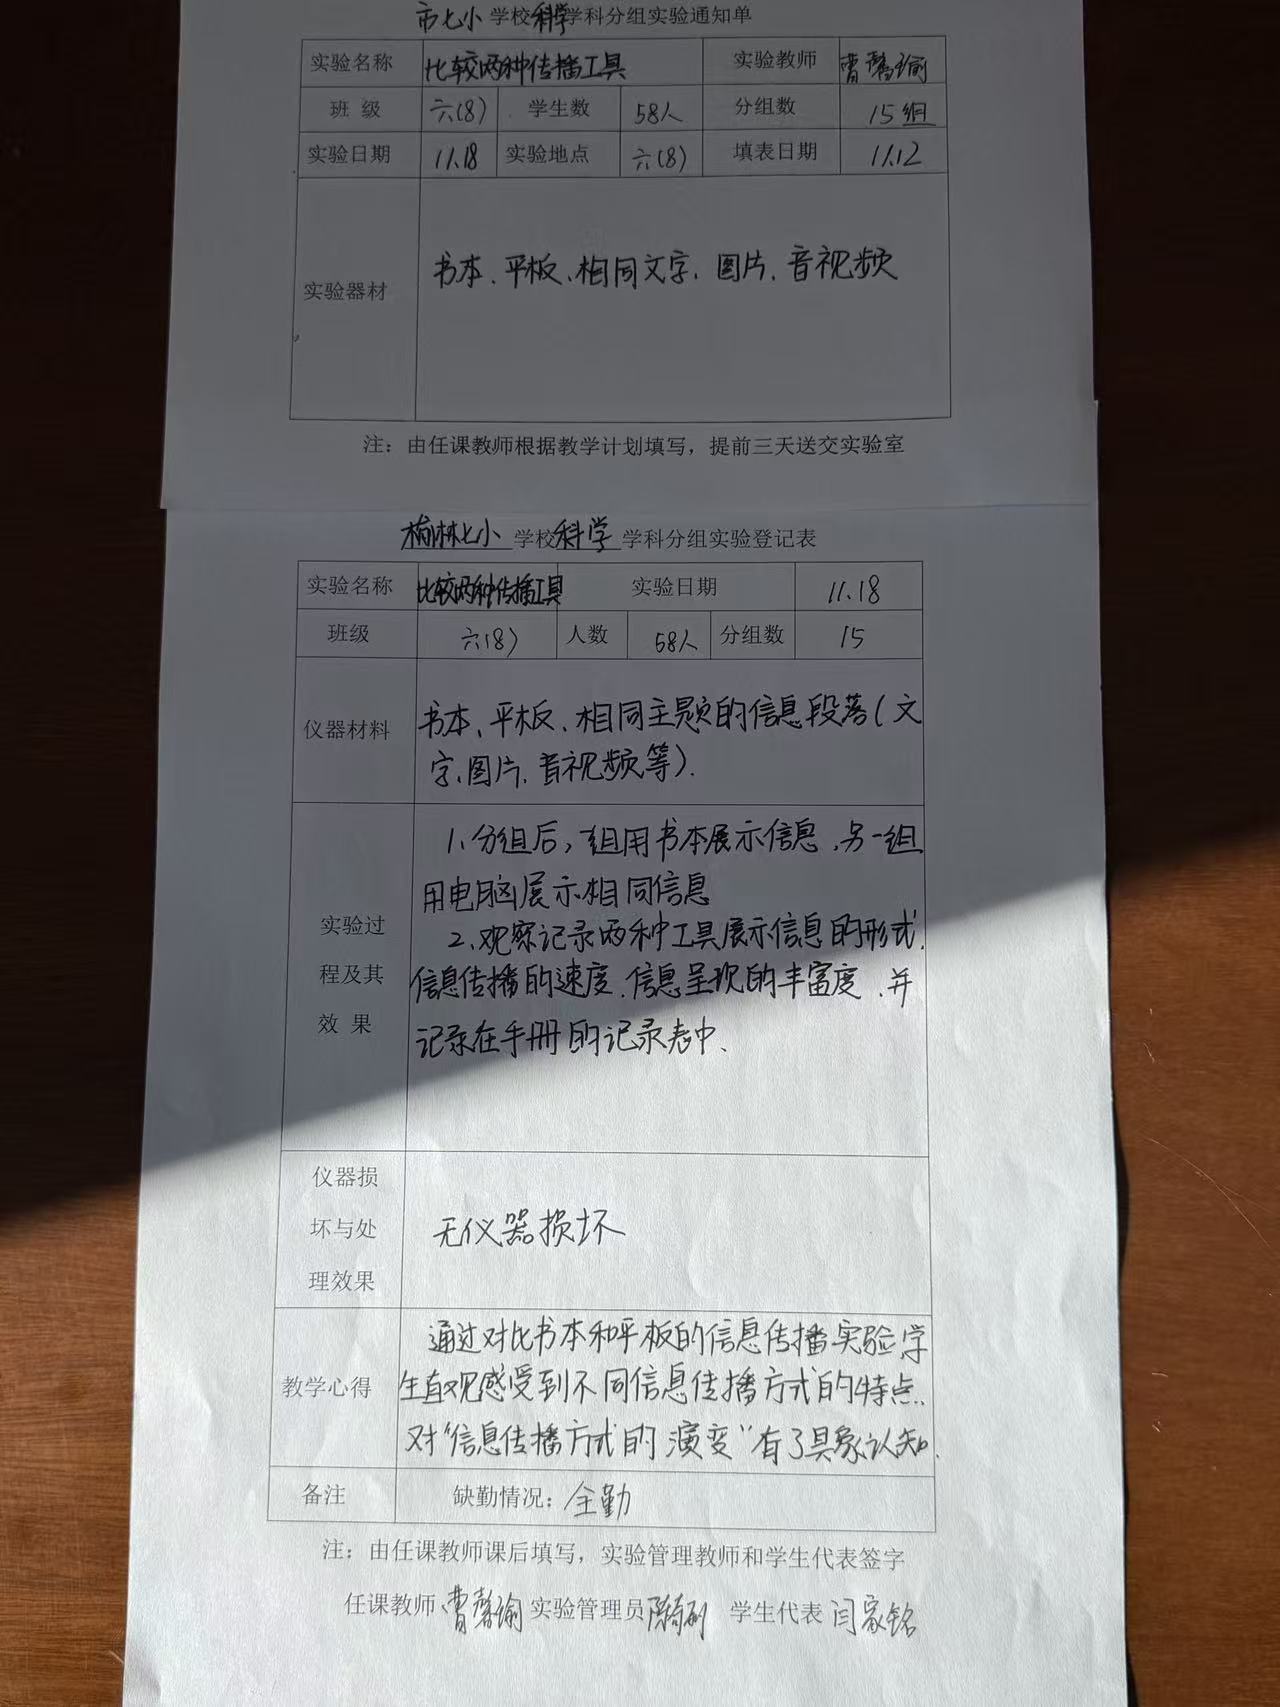 市七小 学校科学学科分组实验通知单
实验名称 比较两种传播工具 实验教师 曹馨瑜
班 级 六(8) 学生数 58人 分组数 15组
实验日期 11.18 实验地点 六(8) 填表日期 11.12
实验器材 书本、平板、相同文字、图片、音视频
注：由任课教师根据教学计划填写，提前三天送交实验室
榆林七小 学校科学 学科分组实验登记表
实验名称 比较两种传播工具 实验日期 11.18
班级 六(8) 人数 58人 分组数 15
仪器材料 书本、平板、相同主题的信息段落(文
字、图片、音视频等).
1、分组后，一组用书本展示信息、另一组
用电脑展示相同信息
实验过
2、观察记录两种工具展示信息的形式、
程及其
信息传播的速度、信息呈现的丰富度、并
效 果
记录在手册的记录表中、
仪器损
坏与处
无仪器损坏
理效果
通过对比书本和平板的信息传播实验,学
教学心得 生直观感受到不同信息传播方式的特点.
对“信息传播方式的演变”有了具象认知.
备注 缺勤情况：全勤
注：由任课教师课后填写，实验管理教师和学生代表签字
任课教师 曹馨瑜 实验管理员 学生代表 闫家铭